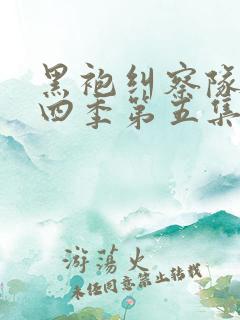 黑袍纠察队
四季第五集
游荡火
未经同意禁止转载